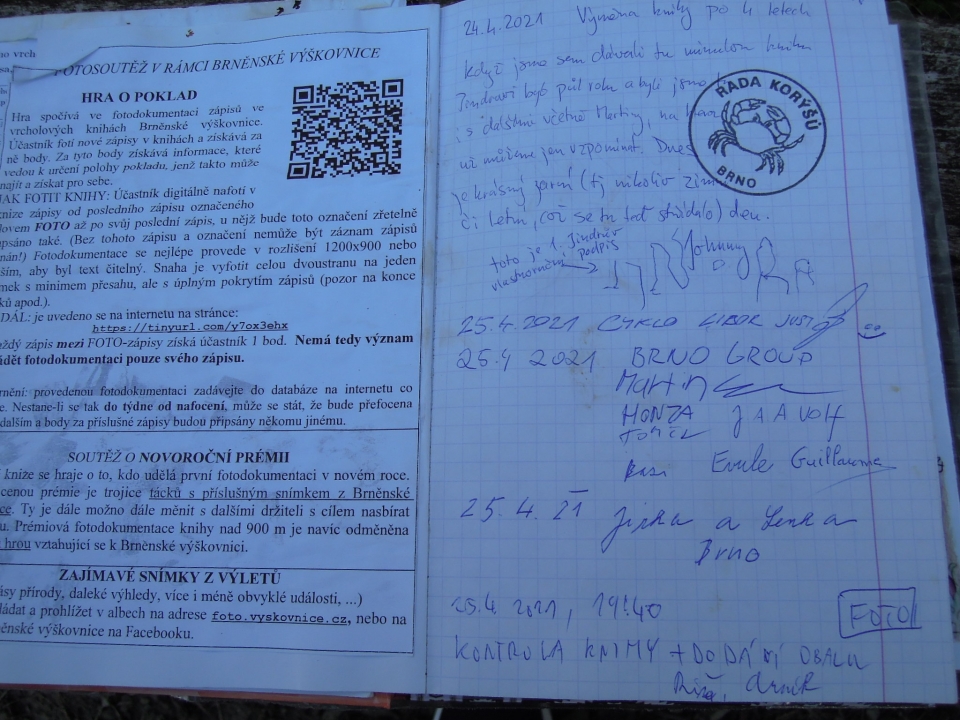 FOTOSOUTĚŽ V RÁMCI BRNĚNSKÉ VÝŠKOVNICE
HRA O POKLAD
Hra spočívá ve fotodokumentaci zápisů ve
vrcholových knihách Brněnské výškovnice.
Účastník fotí nové zápisy v knihách a získává za
ně body. Za tyto body získává informace, které
vedou k určení polohy pokladu, jenž takto může
najít a získat pro sebe.
JAK FOTIT KNIHU: Účastník digitálně nafotí v
knize zápisy od posledního zápisu označeného
slovem FOTO až po svůj poslední zápis, u nějž bude toto označení zřetelně
napsáno také. (Bez tohoto zápisu a označení nemůže být záznam zápisů
uznán!) Fotodokumentace se nejlépe provede v rozlišení 1200x900 nebo
ším, aby byl text čitelný. Snaha je vyfotit celou dvoustranu na jeden
snímek s minimem přesahu, ale s úplným pokrytím zápisů (pozor na konce
ků apod.).
DÁL: je uvedeno se na internetu na stránce:
https://tinyurl.com/y7ox3ehx
každý zápis mezi FOTO-zápisy získá účastník 1 bod. Nemá tedy význam
ádět fotodokumentaci pouze svého zápisu.
rnění: provedenou fotodokumentaci zadávejte do databáze na internetu co
e. Nestane-li se tak do týdne od nafocení, může se stát, že bude přefocena
dalším a body za příslušné zápisy budou připsány někomu jinému.
SOUTĚŽ O NOVOROČNÍ PRÉMII
knize se hraje o to, kdo udělá první fotodokumentaci v novém roce.
cenou prémie je trojice tácků s příslušným snímkem z Brněnské
ce. Ty je dále možno dále měnit s dalšími držiteli s cílem nasbírat
u. Prémiová fotodokumentace knihy nad 900 m je navíc odměněna
hrou vztahující se k Brněnské výškovnici.
ZAJÍMAVÉ SNÍMKY Z VÝLETŮ
ásy přírody, daleké výhledy, více i méně obvyklé události, ...)
ládat a prohlížet v albech na adrese foto.vyskovnice.cz, nebo na
něnské výškovnice na Facebooku.
24.4.2021 Výměna knihy po 4 letech
Když jsme sem dávali tu minulou knihu
Jindrovi byl půl roku a byli jsme tu
i s dalšími včetně Martiny, na kterou
už můžeme jen vzpomínat. Dnes
je krásný jarní (tj. nikoliv zimní
či letní, což se tu teď střídalo) den.
ŘADA KORÝŠŮ
BRNO
toto je 1. Jindrův
vlastnoruční podpis
Johnny
25.4.2021 CYKLO LIBOR
25.4 2021 BRNO GROUP
Martin
HONZA J A A Volf
Guillaume
25.4.21 Jirka a Lenka
Brno
25.4. 2021, 19:40
FOTO
KONTROLA KNIHY + DODÁNÍ OBALU